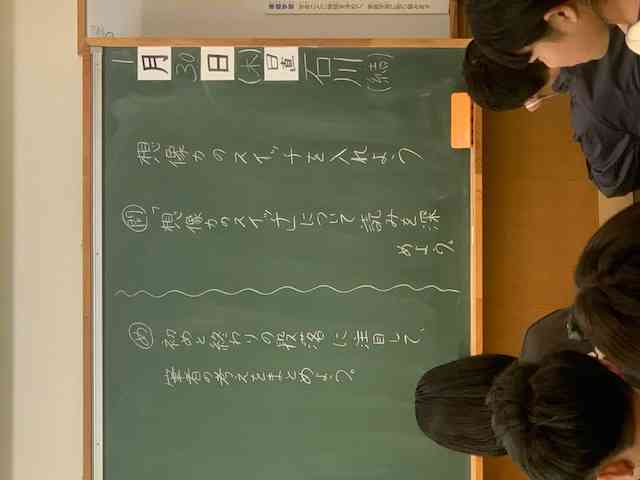 1月30日(木)日直 石川(結)
想像力のスイッチを入れよう
「想像力のスイッチ」について読みを深
めよう。
め 初めと終わりの段落に注目して、
筆者の考えをまとめよう。